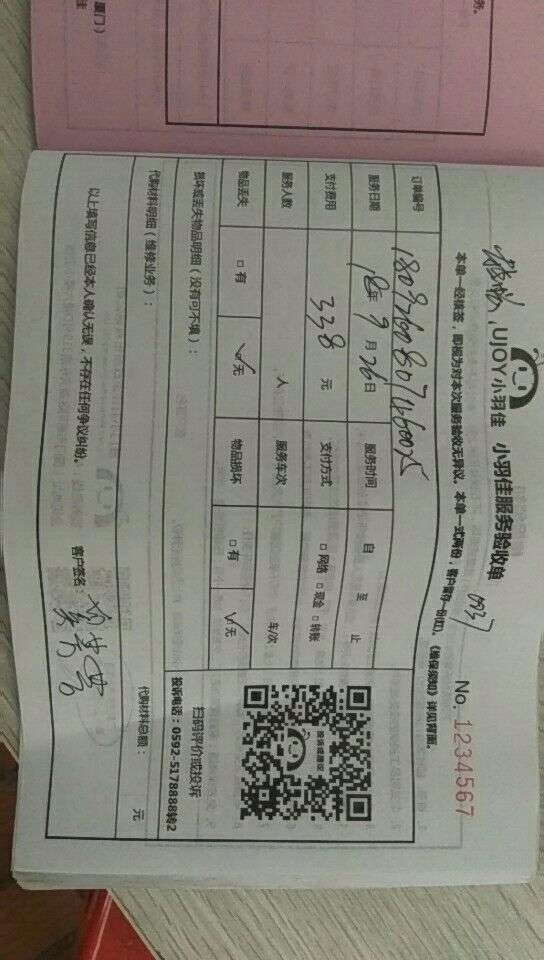 厦门）
务。
UJOY小羽佳 小羽佳服务验收单
0937
No. 1234567
本单一经核签，即视为对本次服务验收无异议。本单一式两份，客户留存一份(红)。《维保须知》详见背面。
订单编号
服务日期 18年9月26日 服务时间 自 至 止
支付费用 338元 支付方式 □网络 □现金 □转账
服务人数 人 服务车次 车/次
物品丢失 □有 ☑无 物品损坏 □有 ☑无
损坏或丢失物品明细（没有可不填）：
代购材料明细（维修业务）：
代购材料总额： 元
扫码评价或投诉
投诉电话：0592-5178888转2
以上填写信息已经本人确认无误，不存在任何争议纠纷。 客户签名：